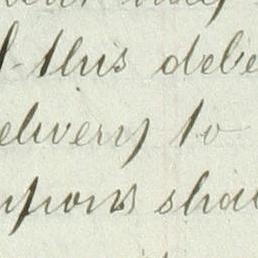 this debe
elivery to
upons shal